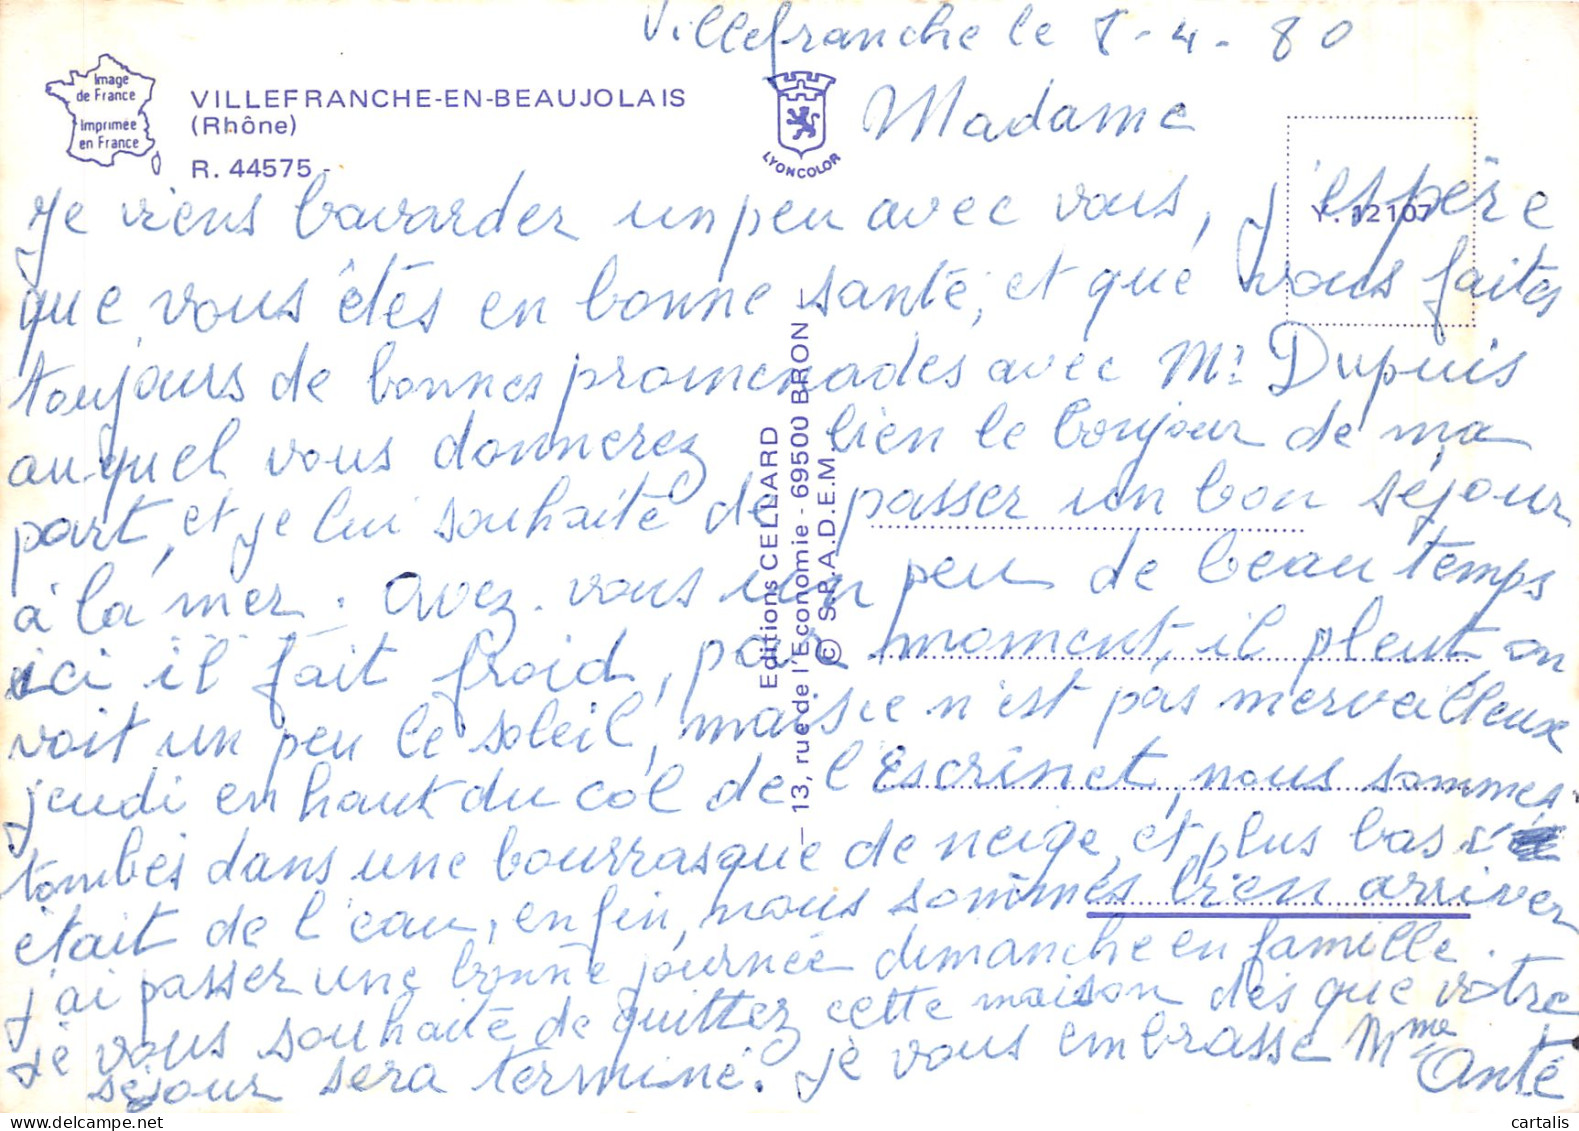 Villefranche le 8-4-80
Image
de France
Imprimée
en France
VILLEFRANCHE-EN-BEAUJOLAIS
(Rhône)
R. 44575 -
LYONCOLOR
Madame
Y. 12107
Je viens bavarder un peu avec vous, j'espère
que vous êtés en bonne santé, et que vous faites
toujours de bonnes promenades avec Mr Dupuis
auquel vous donnerez bien le bonjour de ma
part, et je lui souhaite de passer un bon séjour
à la mer. Avez-vous un peu de beau temps
ici il fait froid, par moment, il pleut, on
voit un peu le soleil, mais ce n'est pas merveilleux
jeudi en haut du col de l'Escrinet, nous sommes
tombés dans une bourrasque de neige, et plus bas c'
était de l'eau, enfin, nous sommes bien arriver
j'ai passer une bonne journée dimanche en famille.
Je vous souhaite de quittez cette maison dès que votre
séjour sera terminé. Je vous embrasse Mme Anté
Editions CELLARD
— 13, rue de l'Economie - 69500 BRON —
© S.P.A.D.E.M.
cartalis